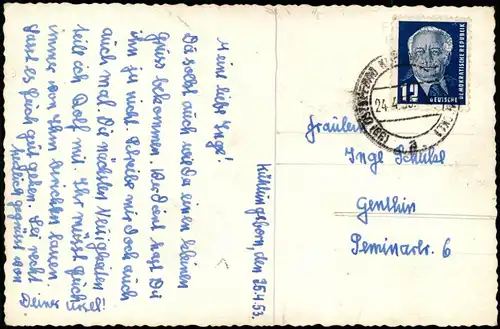 Kühlungsborn, den 25.4.53.
Meine liebe Inge!
Du sollst auch mal Da einen kleinen
Gruss bekommen. Verdient hast Du
ihn ja nicht. Schreibe mir doch auch
auch mal die nächsten Neuigkeiten
teile ich Dorf mit. Ihr müsst Euch
immer von Ihm berichten lassen.
Lasst es Euch gut gehen. Sei recht
herzlich gegrüsst von
Deiner Ursel!
Fräulein
Inge Schulze
Genthin
Seminarstr. 6
12
DEUTSCHE
DEMOKRATISCHE REPUBLIK
24.4.53